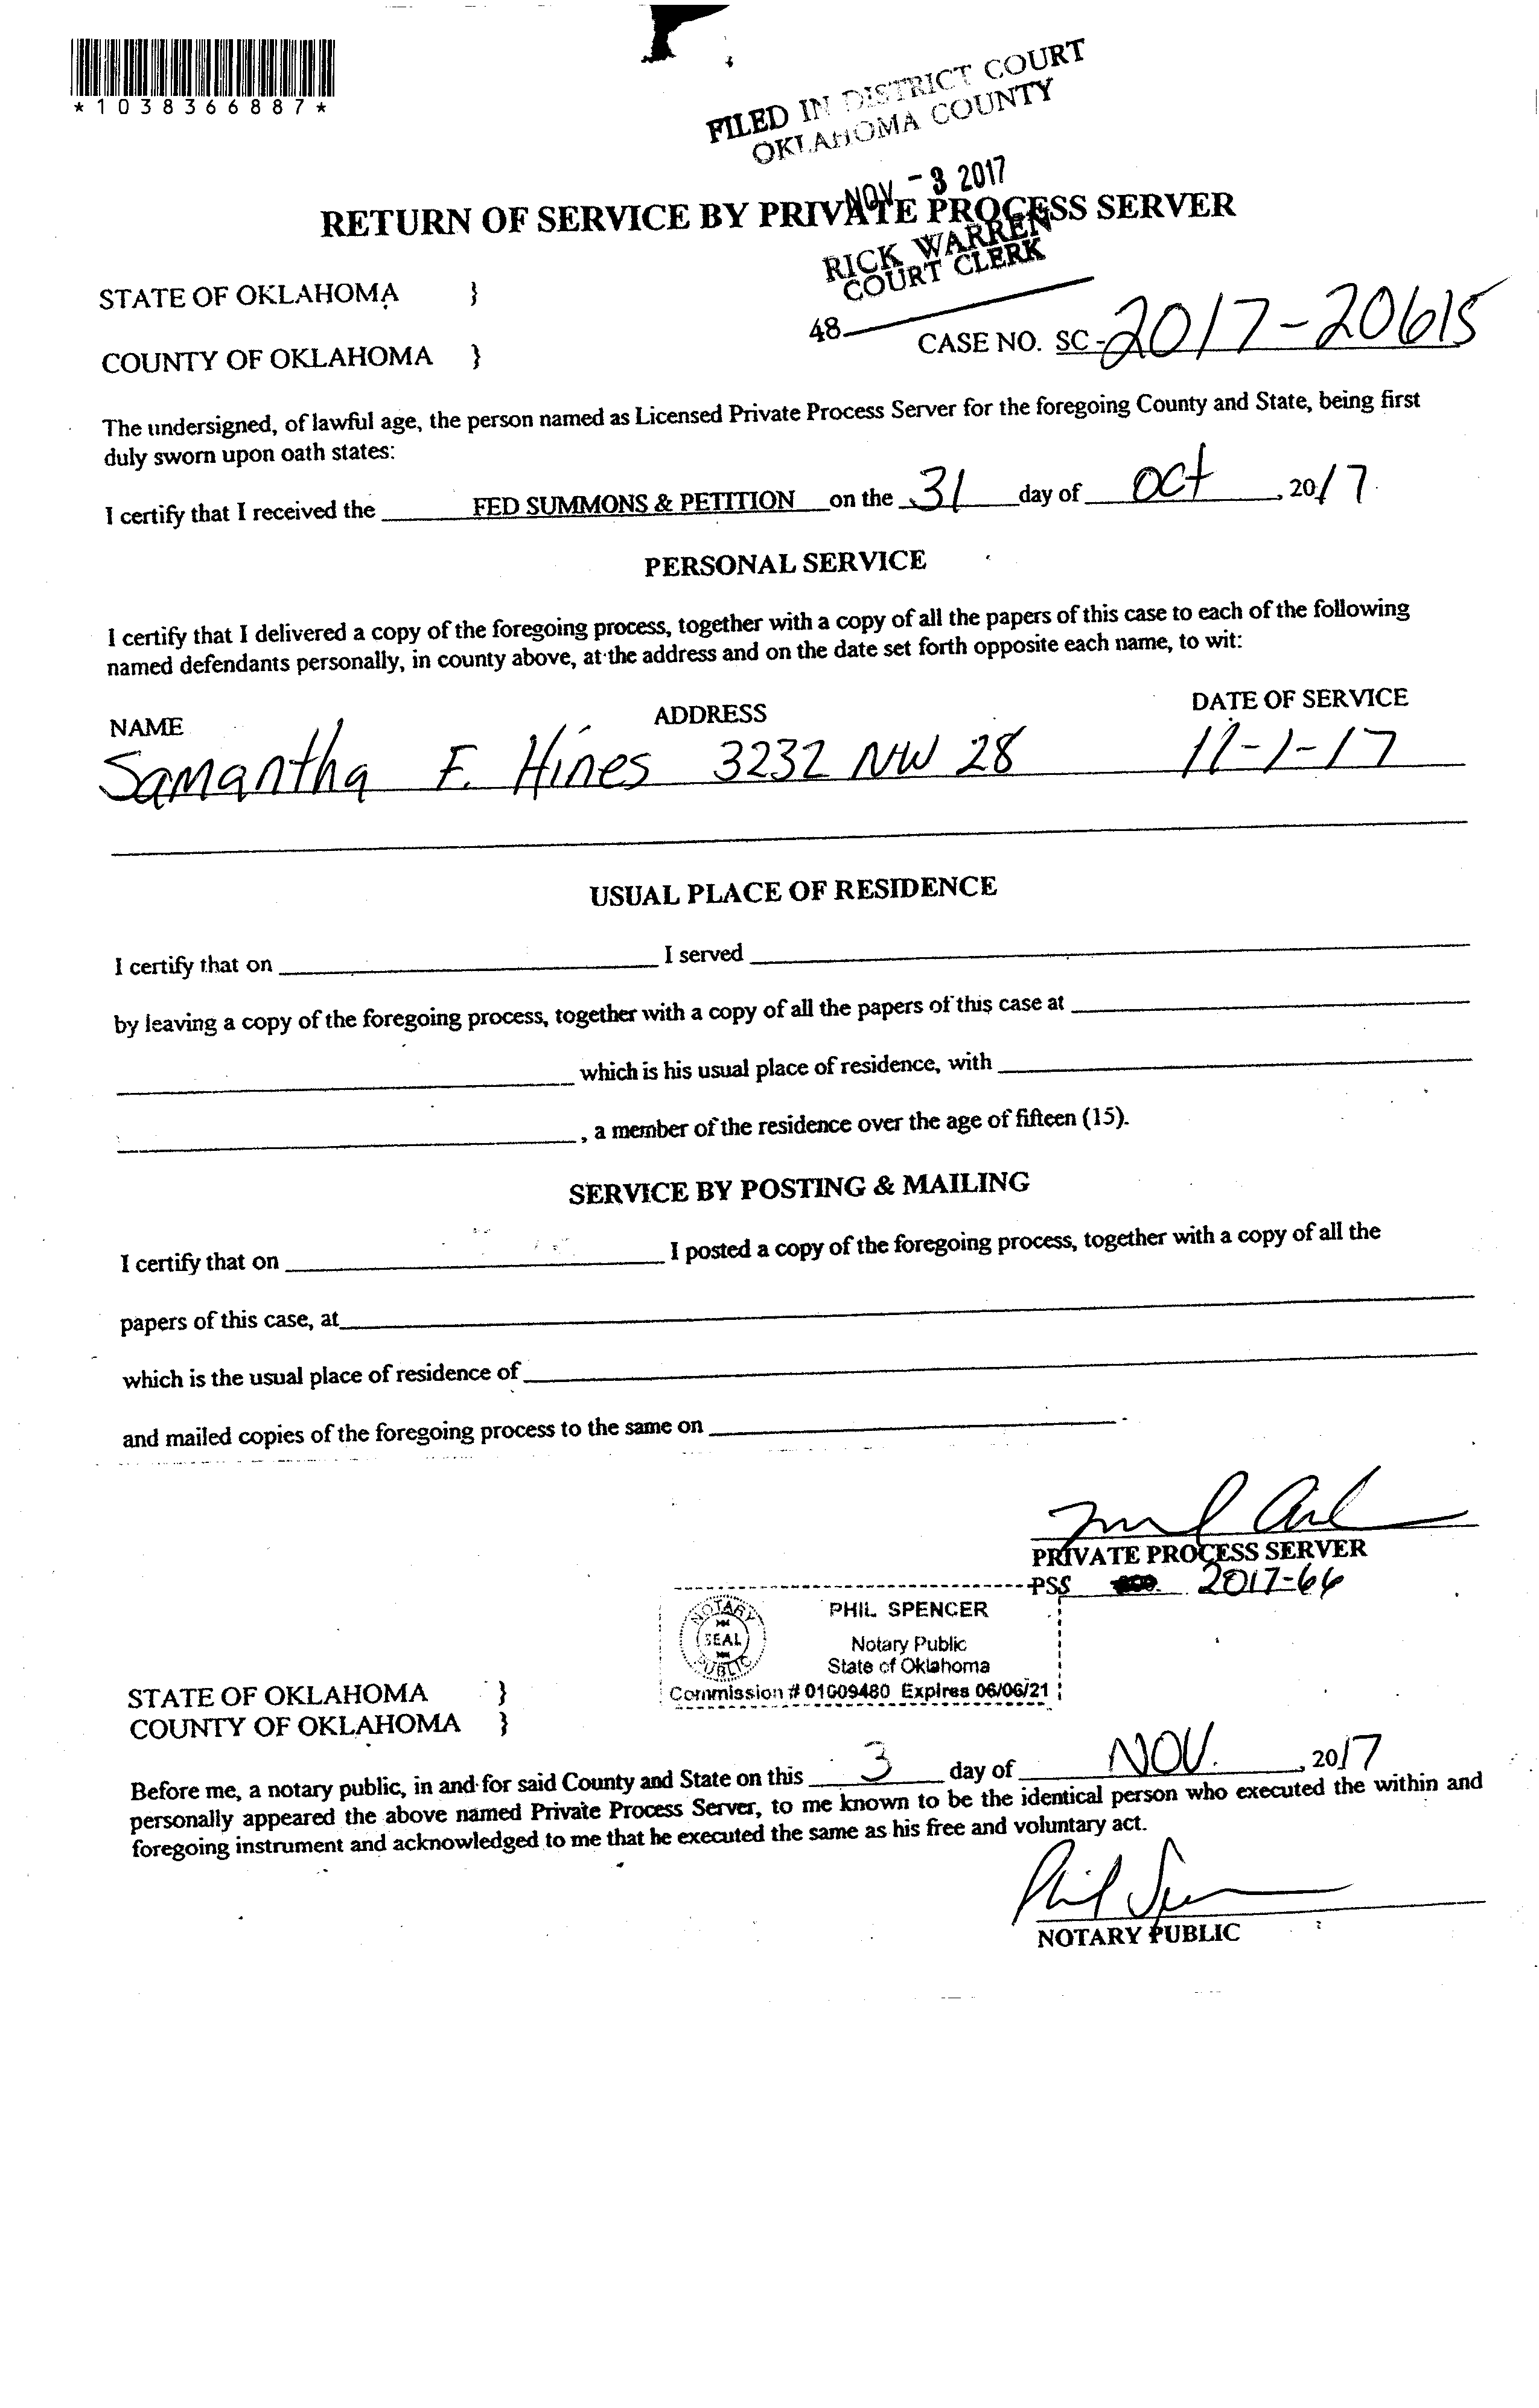 *1038366887*
FILED IN DISTRICT COURT
OKLAHOMA COUNTY
NOV - 3 2017
RETURN OF SERVICE BY PRIVATE PROCESS SERVER
RICK WARREN
COURT CLERK
48
STATE OF OKLAHOMA }
COUNTY OF OKLAHOMA } CASE NO. SC-2017-20615
The undersigned, of lawful age, the person named as Licensed Private Process Server for the foregoing County and State, being first
duly sworn upon oath states:
I certify that I received the FED SUMMONS & PETITION on the 31 day of Oct, 2017.
PERSONAL SERVICE
I certify that I delivered a copy of the foregoing process, together with a copy of all the papers of this case to each of the following
named defendants personally, in county above, at the address and on the date set forth opposite each name, to wit:
NAME ADDRESS DATE OF SERVICE
Samantha F. Hines 3232 NW 28 11-1-17
USUAL PLACE OF RESIDENCE
I certify that on I served
by leaving a copy of the foregoing process, together with a copy of all the papers of this case at
which is his usual place of residence, with
, a member of the residence over the age of fifteen (15).
SERVICE BY POSTING & MAILING
I certify that on I posted a copy of the foregoing process, together with a copy of all the
papers of this case, at
which is the usual place of residence of
and mailed copies of the foregoing process to the same on .
PRIVATE PROCESS SERVER
PSS 2017-66
NOTARY SEAL PUBLIC
PHIL SPENCER
Notary Public
State of Oklahoma
Commission # 01009480 Expires 06/06/21
STATE OF OKLAHOMA }
COUNTY OF OKLAHOMA }
Before me, a notary public, in and for said County and State on this 3 day of NOV., 2017
personally appeared the above named Private Process Server, to me known to be the identical person who executed the within and
foregoing instrument and acknowledged to me that he executed the same as his free and voluntary act.
Phil Spencer
NOTARY PUBLIC